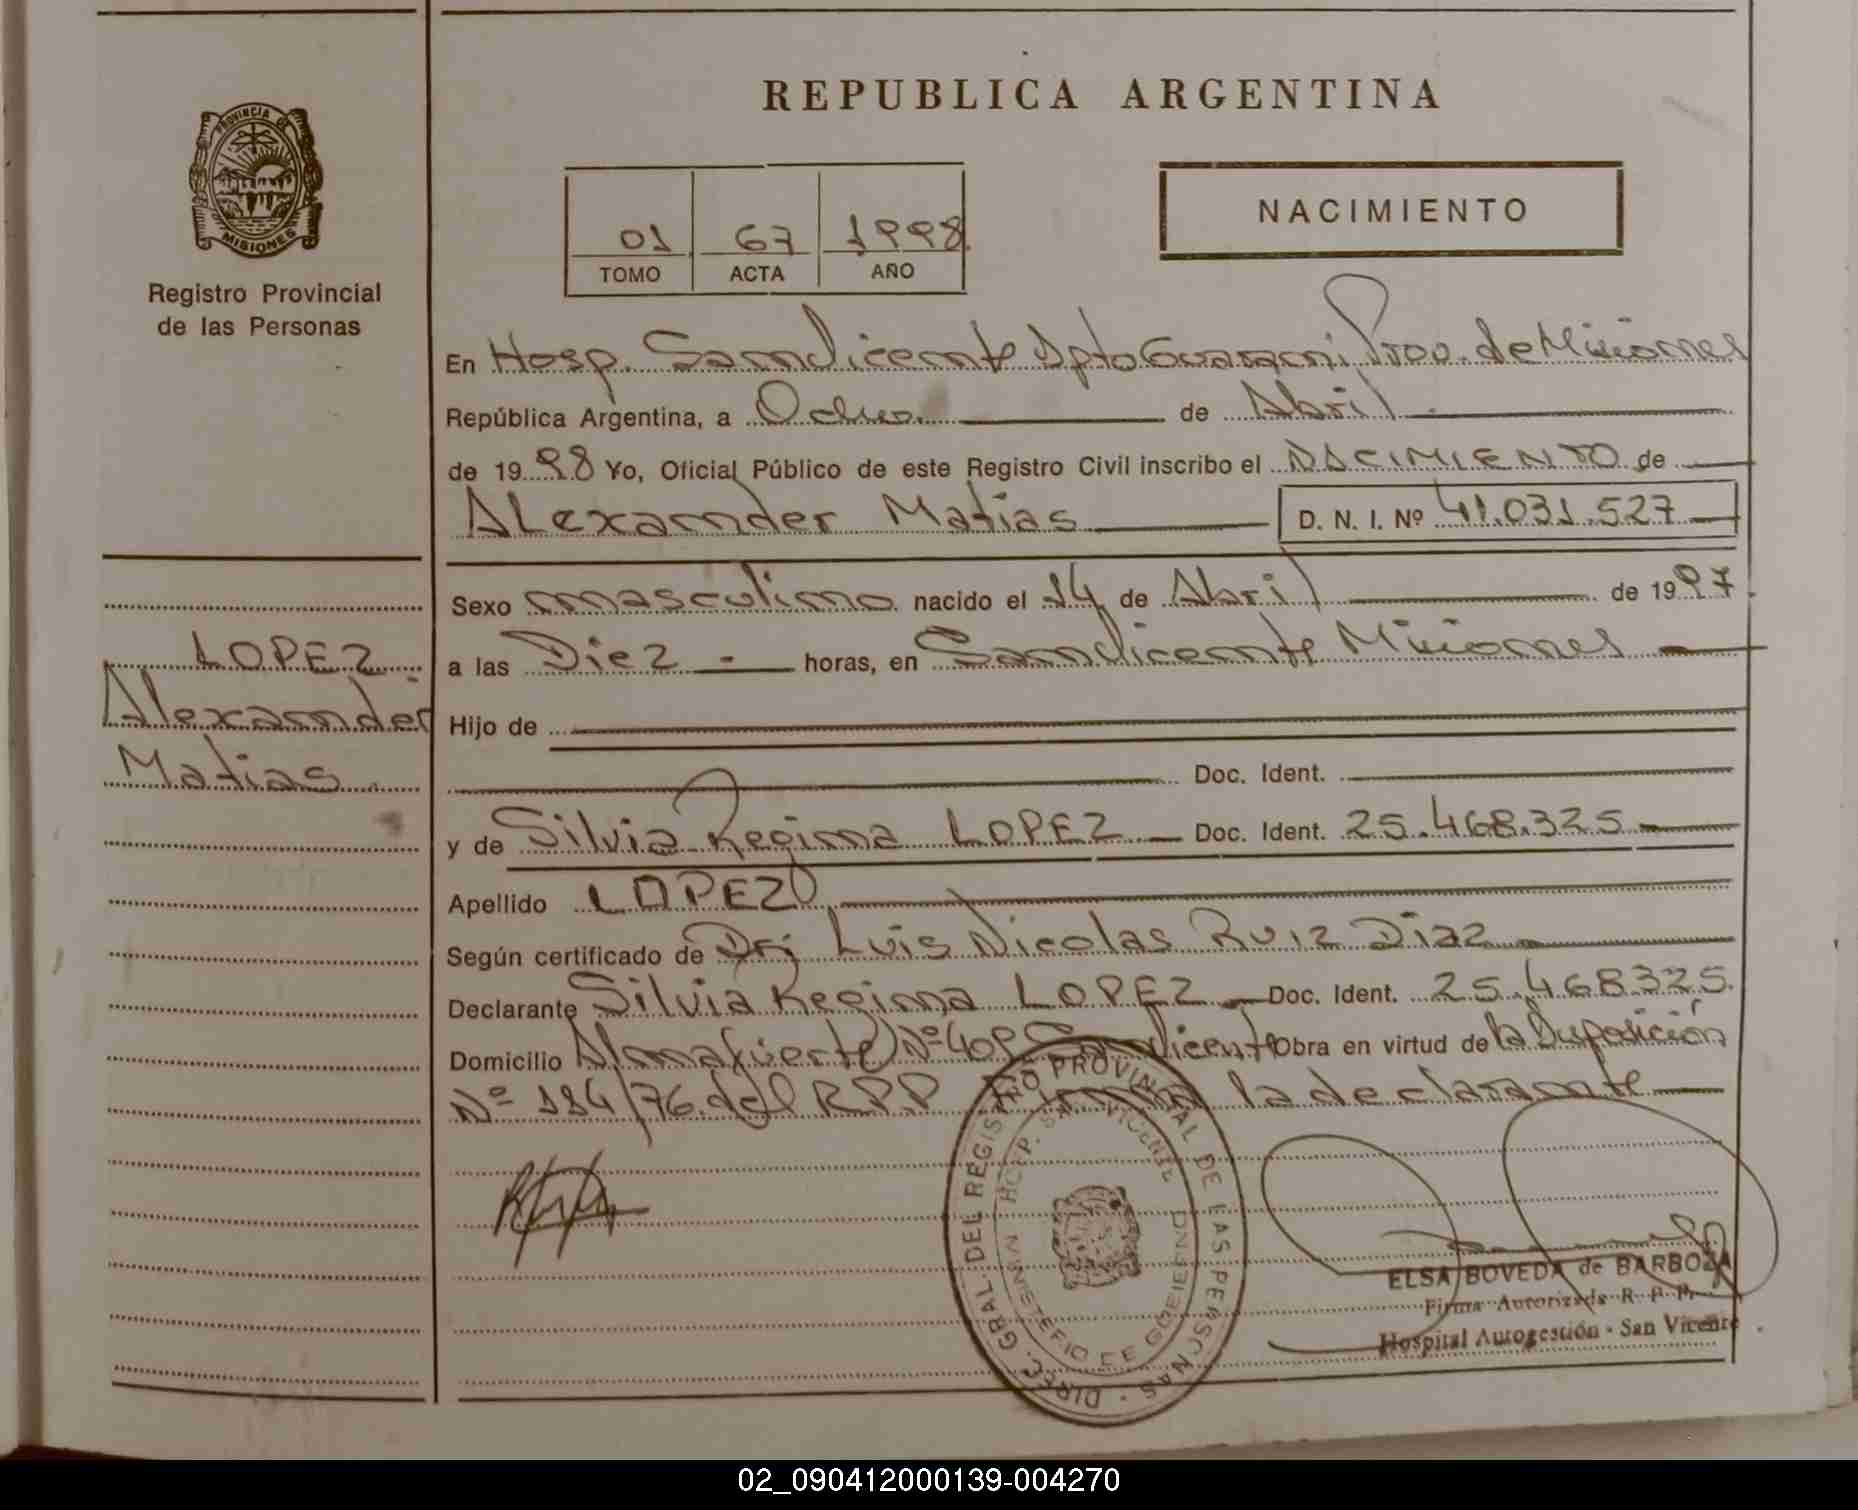 REPUBLICA ARGENTINA
PROVINCIA DE
MISIONES
Registro Provincial
de las Personas
01 67 1998
TOMO ACTA AÑO
NACIMIENTO
En Hosp. San Vicente Dpto Guarani Prov. de Misiones
República Argentina, a Ocho de Abril
de 1998 Yo, Oficial Público de este Registro Civil inscribo el NACIMIENTO de
Alexander Matias D. N. I. Nº 41.031.527
Sexo masculino nacido el 14 de Abril de 1997
a las Diez - horas, en San Vicente Misiones
LOPEZ
Alexander
Matias
Hijo de
Doc. Ident.
y de Silvia Regina LOPEZ Doc. Ident. 25.468.325
Apellido LOPEZ
Según certificado de Dr: Luis Nicolas Ruiz Diaz
Declarante Silvia Regina LOPEZ Doc. Ident. 25.468325.
Domicilio Almafuerte Nº 409 San Vicente Obra en virtud de la Disposición
Nº 184/76 del RPP Firma la declarante
DIREC. GRAL. DEL REGISTRO PROVINCIAL DE LAS PERSONAS
HOSP. SAN VICENTE
MINISTERIO DE GOBIERNO
ELSA BOVEDA de BARBOZA
Firma Autorizada R. P. P.
Hospital Autogestión - San Vicente
02_090412000139-004270